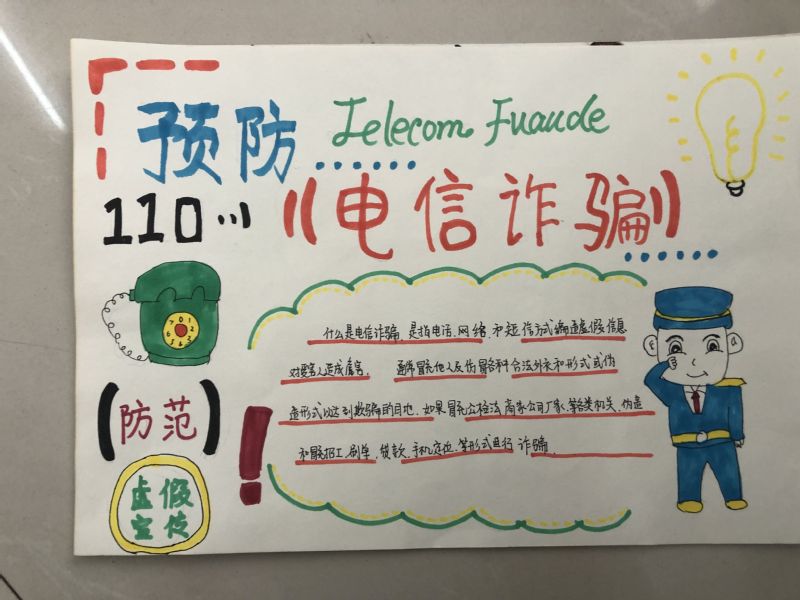 预防
Telecom Fuaude
110
电信诈骗
什么是电信诈骗,是指电话、网络、和短信方式编造虚假信息
对受害人造成 通常冒充他人及仿冒各种合法外衣和形式或伪
造形式以达到欺骗的目的,如果冒充公检法、商家公司厂家、等各类机关、伪造
和冒充招工、刷单、贷款、手机定位、等形式进行诈骗
防范
虚假
宣传